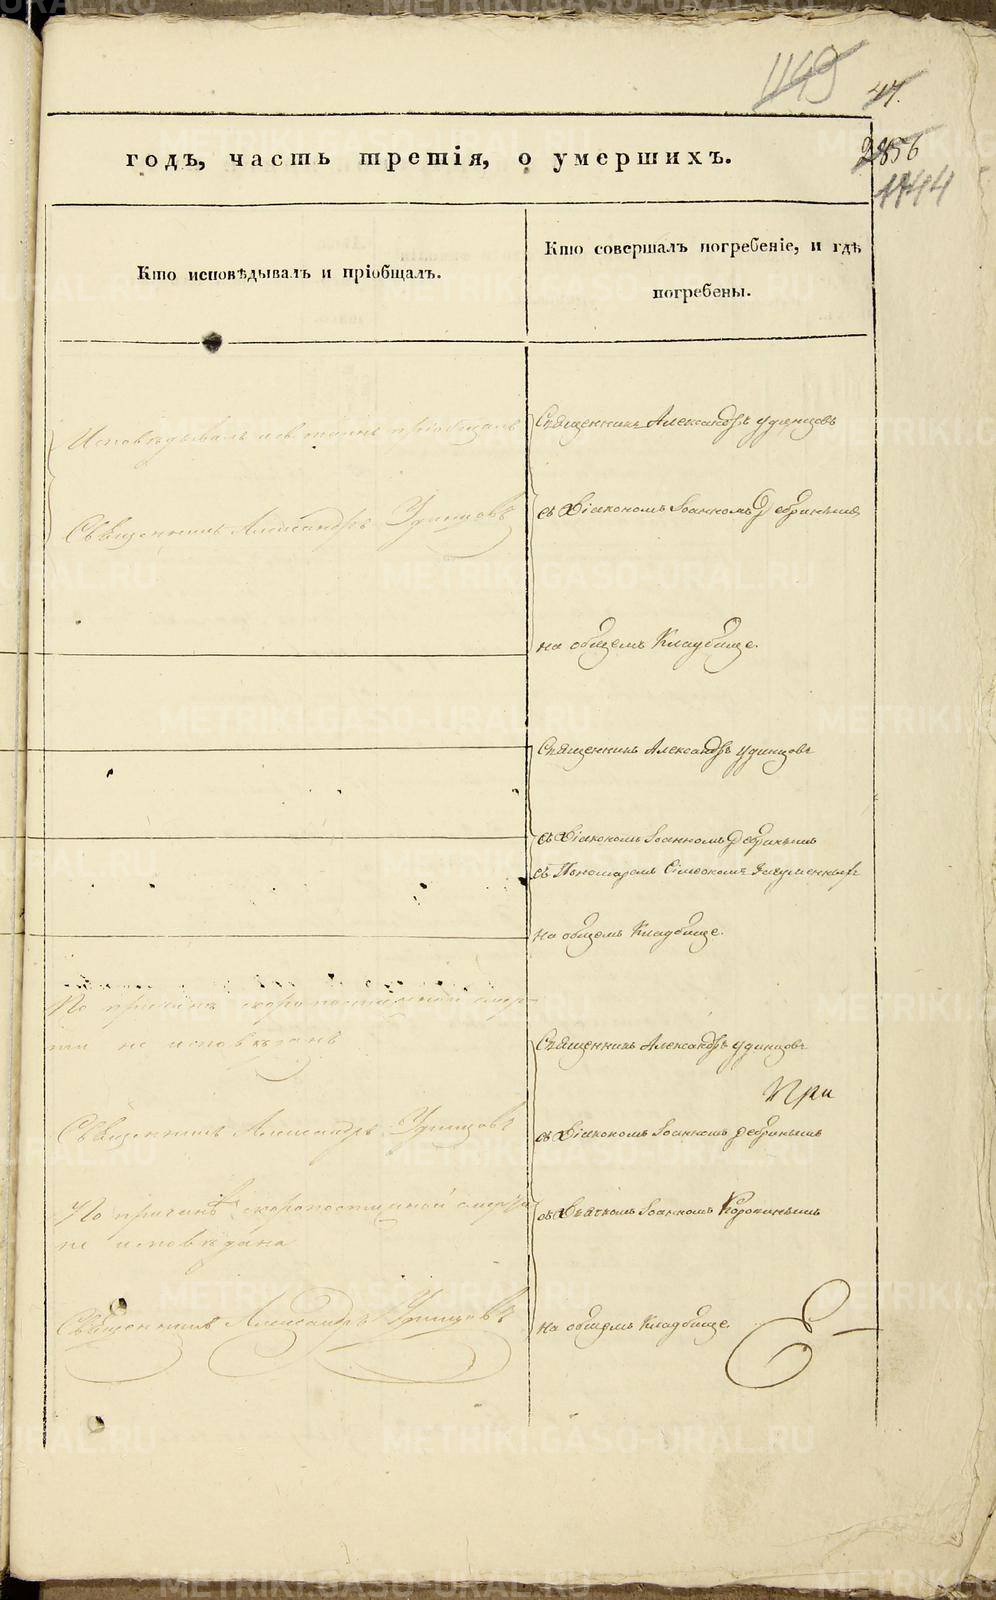 1149
47.
годъ, часть третія, о умершихъ.
2856
1744
Кто исповѣдывалъ и пріобщалъ.
Кто совершалъ погребеніе, и гдѣ
погребены.
Исповѣдывалъ и св. таинъ пріобщалъ
Священникъ Александръ Удинцовъ
Священникъ Александръ Удинцовъ
съ Діакономъ Іоанномъ
на общемъ Кладбище.
Священникъ Александръ Удинцовъ
съ Діакономъ Іоанномъ
съ Пономаремъ Сімеономъ Игуменнымъ
на общемъ Кладбище.
По причинѣ скоропостижной смер-
ти не исповѣданъ
Священникъ Александръ Удинцовъ
Священникъ Александръ Удинцовъ
При
съ Діакономъ Іоанномъ
По причинѣ скоропостижной смерти
не исповѣдана
съ Дьячкомъ Іоанномъ
Священникъ Александръ Удинцовъ
на общемъ Кладбище
METRIKI.GASO-URAL.RU